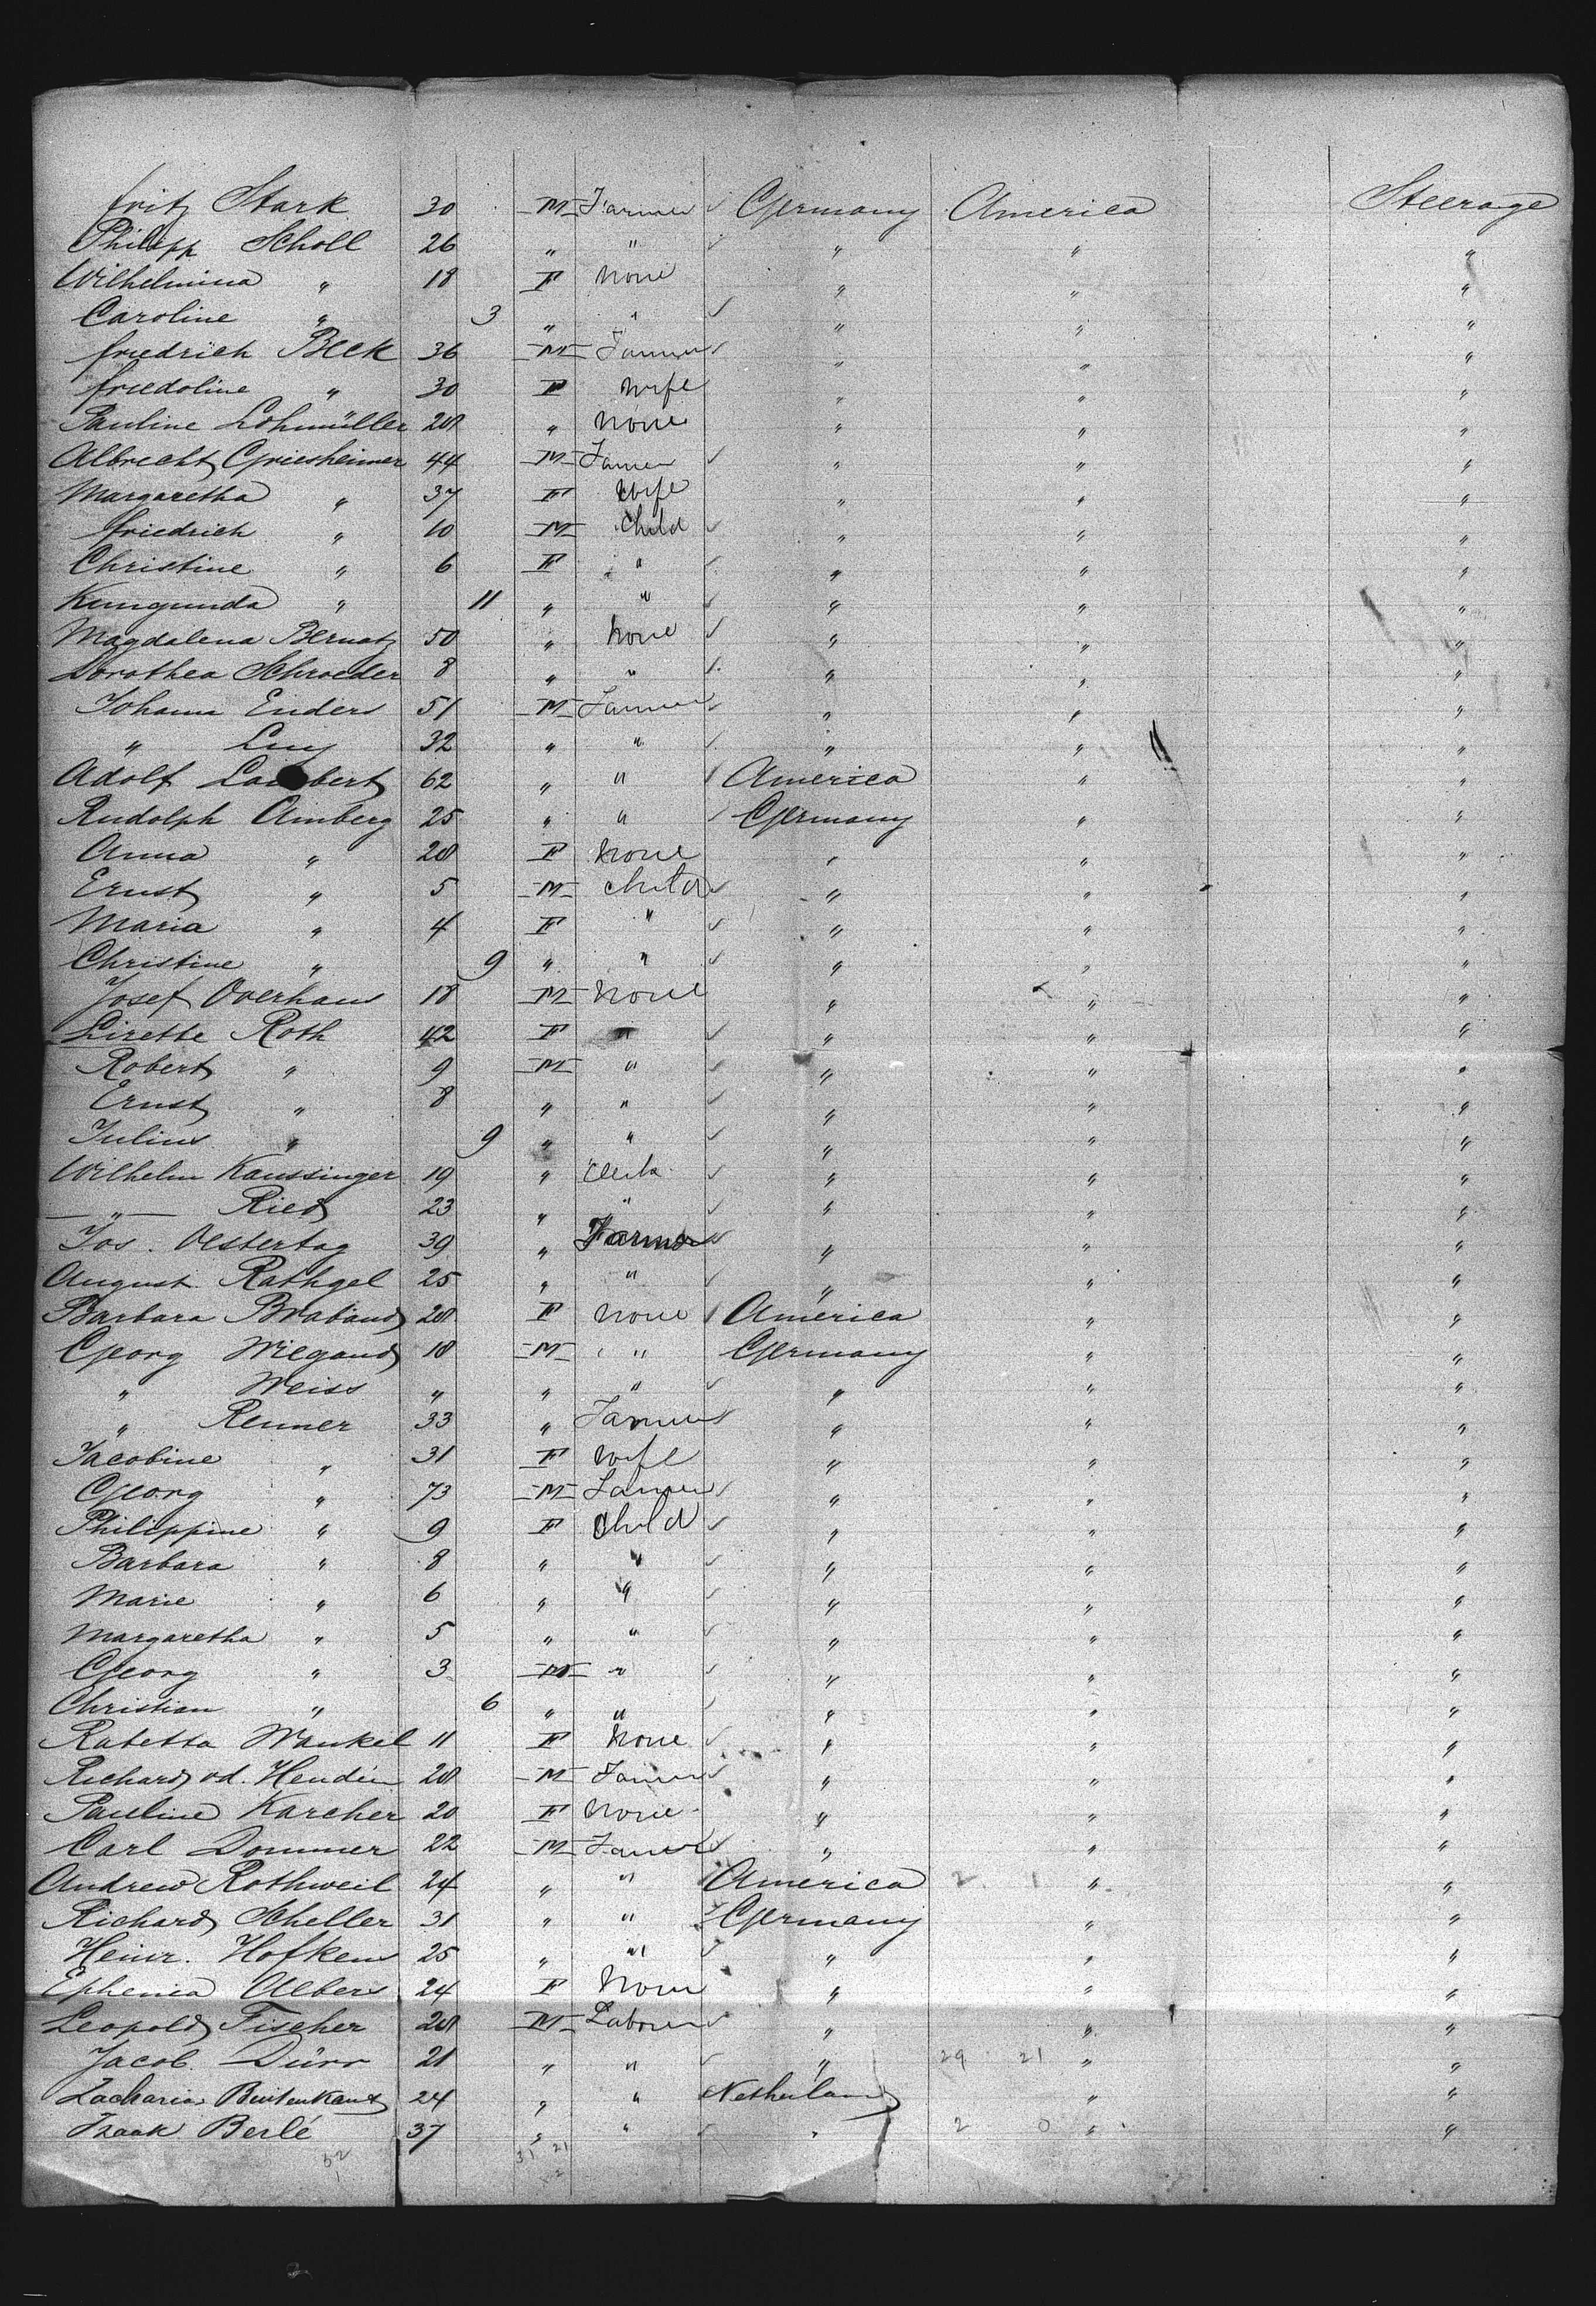 Fritz Stark 30 M Farmer Germany America Steerage
Philipp Scholl 26 " " " " "
Wilhelmina " 18 F None " " "
Caroline " 3 " " " " "
Friedrich Beck 36 M Farmer " " "
Friedoline " 30 F Wife " " "
Pauline Lohmüller 20 " None " " "
Albrecht Griesheimer 44 M Farmer " " "
Margaretha " 37 F Wife " " "
Friedrich " 10 M Child " " "
Christine " 6 F " " " "
Kunigunda " 11 " " " " "
Magdalena Bernatz 50 " None " " "
Dorothea Schroeder 8 " " " " "
Johann Enders 51 M Farmer " " "
" Luy 32 " " " " "
Adolf 62 " " America " "
Rudolph Amberg 25 " " Germany " "
Anna " 28 F None " " "
Ernst " 5 M Child " " "
Maria " 4 F " " " "
Christine " 9 " " " " "
Josef Overhaus 18 M None " " "
Lisette Roth 42 F " " " "
Robert " 9 M " " " "
Ernst " 8 " " " " "
Julius " 9 " " " " "
Wilhelm Kaussinger 19 " Clerk " " "
" Ried 23 " " " " "
Jos. Oestertag 39 " Farmer " " "
August Rathgel 25 " " " " "
Barbara Braband 28 F None America " "
Georg Wiegand 18 M " Germany " "
" Weiss " " " " " "
" Renner 33 " Farmer " " "
Jacobine " 31 F Wife " " "
Georg " 73 M Farmer " " "
Philippine " 9 F Child " " "
Barbara " 8 " " " " "
Marie " 6 " " " " "
Margaretha " 5 " " " " "
Georg " 3 M " " " "
Christian " 6 " " " " "
Babetta Wankel 11 F None " " "
Richard v.d. 28 M Farmer " " "
Pauline Karcher 20 F None " " "
Carl Dommer 22 M Farmer " " "
Andrew Rothweil 24 " " America 2 1 " "
Richard Scheller 31 " " Germany " "
Heinr. Hofken 25 " " " " "
Ephenia Albers 24 F None " " "
Leopold Fischer 28 M Laborer " " "
Jacob Dürr 21 " " " 29 21 " "
Zacharias Buitenkant 24 " " Netherland " "
Izaak Berlé 37 " " " 2 0 " "
32 31 21
1 2